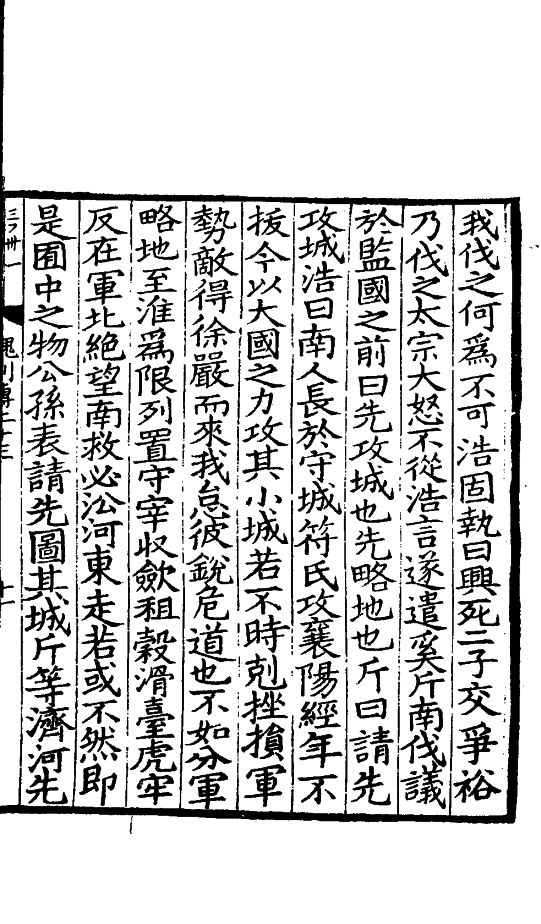 我伐之何爲不可浩固執曰興死二子交爭裕
乃伐之太宗大怒不從浩言遂遣奚斤南伐議
於監國之前曰先攻城也先略地也斤曰請先
攻城浩曰南人長於守城符氏攻襄陽經年不
拔今以大國之力攻其小城若不時剋挫損軍
勢敵得徐嚴而來我怠彼銳危道也不如分軍
略地至淮爲限列置守宰收斂租穀滑臺虎牢
反在軍北絶望南救必沿河東走若或不然即
是囿中之物公孫表請先圖其城斤等濟河先